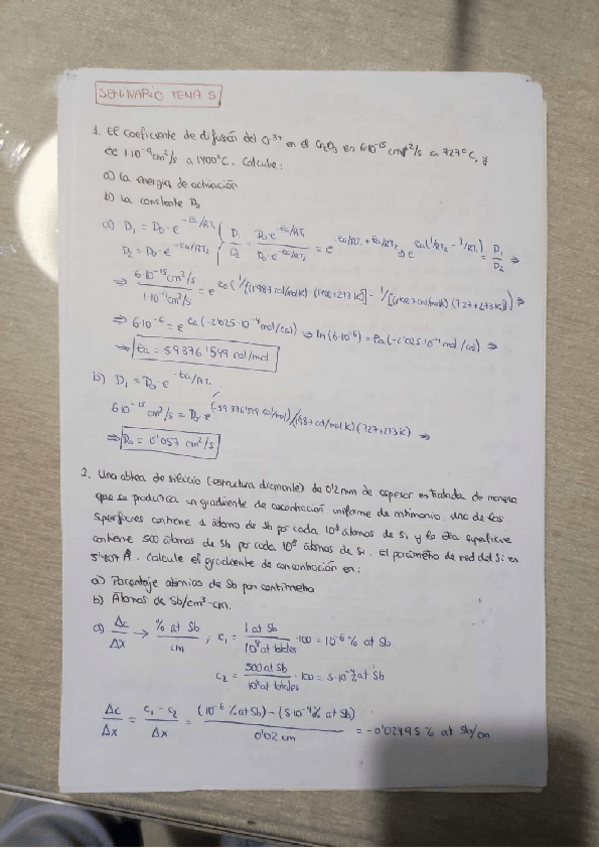 SEMINARIO TEMA 5
1. El coeficiente de difusión del Cr³⁺ en el Cr₂O₃ es 6·10⁻¹⁵ cm²/s a 727°C, y
es 1·10⁻⁹ cm²/s a 1400°C. Calcule:
a) La energía de activación
b) La constante D₀
a) D₁ = D₀·e^(-Ea/RT₁) D₁/D₂ = D₀·e^(-Ea/RT₁) / D₀·e^(-Ea/RT₂) = e^(-Ea/RT₁ + Ea/RT₂) ⇒ e^(Ea(1/RT₂ - 1/RT₁)) = D₁/D₂ ⇒
D₂ = D₀·e^(-Ea/RT₂)
⇒ 6·10⁻¹⁵ cm²/s / 1·10⁻⁹ cm²/s = e^(Ea(1/[(1'987 cal/molK)·(1400+273K)] - 1/[(1'987 cal/molK)(727+273K)])) ⇒
⇒ 6·10⁻⁶ = e^(Ea(-2'025·10⁻⁴ mol/cal)) ⇒ ln(6·10⁻⁶) = Ea(-2'025·10⁻⁴ mol/cal) ⇒
⇒ Ea = 59376'599 cal/mol
b) D₁ = D₀·e^(-Ea/RT₁)
6·10⁻¹⁵ cm²/s = D₀·e^((-59376'599 cal/mol)/(1'987 cal/molK)(727+273K)) ⇒
⇒ D₀ = 0'057 cm²/s
2. Una oblea de silicio (estructura diamante) de 0'2 mm de espesor es tratada de manera
que se produzca un gradiente de concentración uniforme de antimonio. Una de las
superficies contiene 1 átomo de Sb por cada 10⁸ átomos de Si y la otra superficie
contiene 500 átomos de Sb por cada 10⁸ átomos de Si. El parámetro de red del Si es
5'407 Å. Calcule el gradiente de concentración en:
a) Porcentaje atómico de Sb por centímetro
b) Átomos de Sb/cm³·cm.
a) Δc/Δx → % at Sb/cm ; c₁ = 1 at Sb/10⁸ at totales · 100 = 10⁻⁶ % at Sb
c₂ = 500 at Sb/10⁸ at totales · 100 = 5·10⁻⁴ % at Sb
Δc/Δx = c₁ - c₂/Δx = (10⁻⁶ % at Sb) - (5·10⁻⁴ % at Sb)/0'02 cm = -0'02495 % at Sb/cm